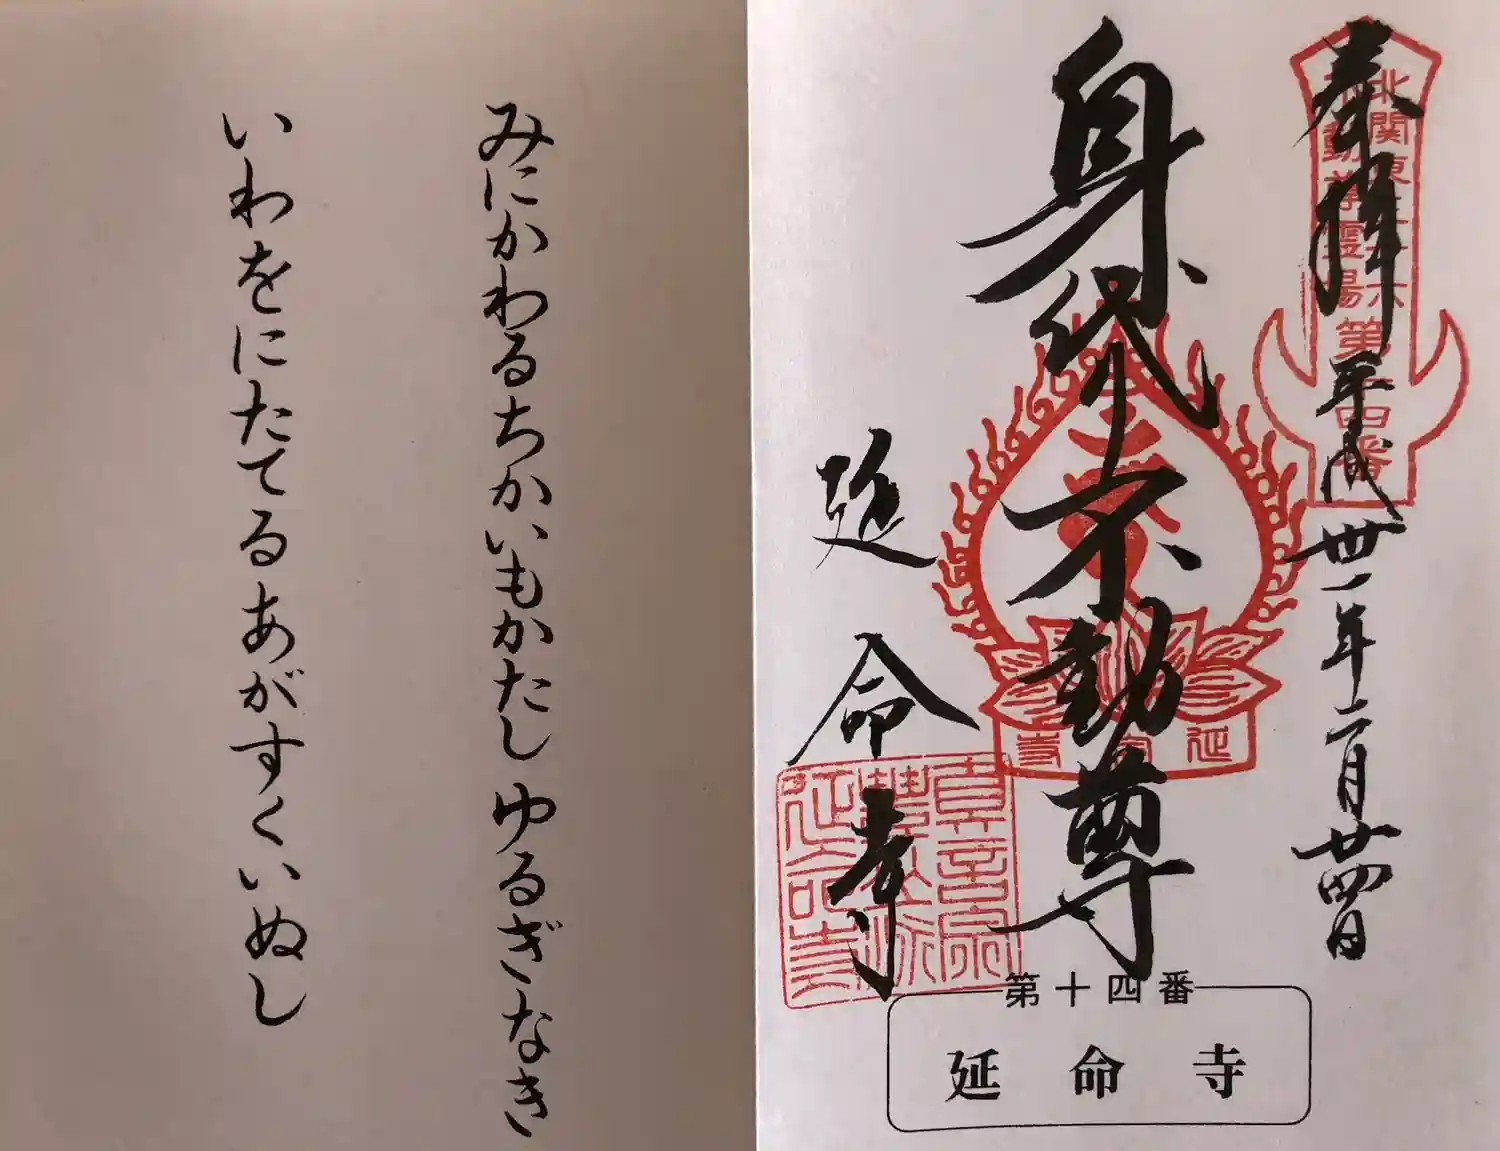 奉拝
平成卅一年二月廿四日
北関東三十六
不動尊霊場
第十四番
身代不動尊
延命寺
延命寺
真言宗
豊山派
延命寺
第十四番
延命寺
みにかわるちかいもかたしゆるぎなき
いわをにたてるあがすくいぬし